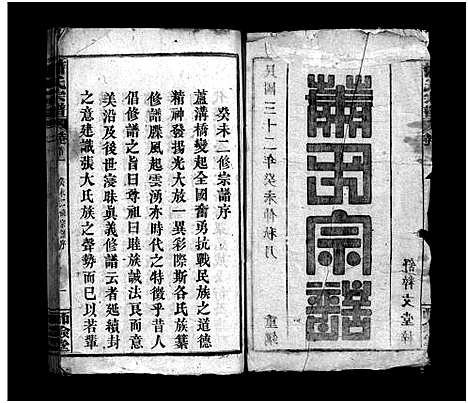 民國三十二年癸未仲秋月
重鐫
宗譜
癸未二修宗譜序
蓋溝橋變起全國奮勇抗戰民族之道德
精神發揚光大放一異彩際斯各氏族纂
修譜牒風起雲湧亦時代之特徵乎昔人
倡修譜之旨曰尊祖曰睦族誠法良而意
美沿及後世寖昧真義修譜云者延續封
之意建議張大氏族之聲勢而已以若輩
癸未二修宗譜序